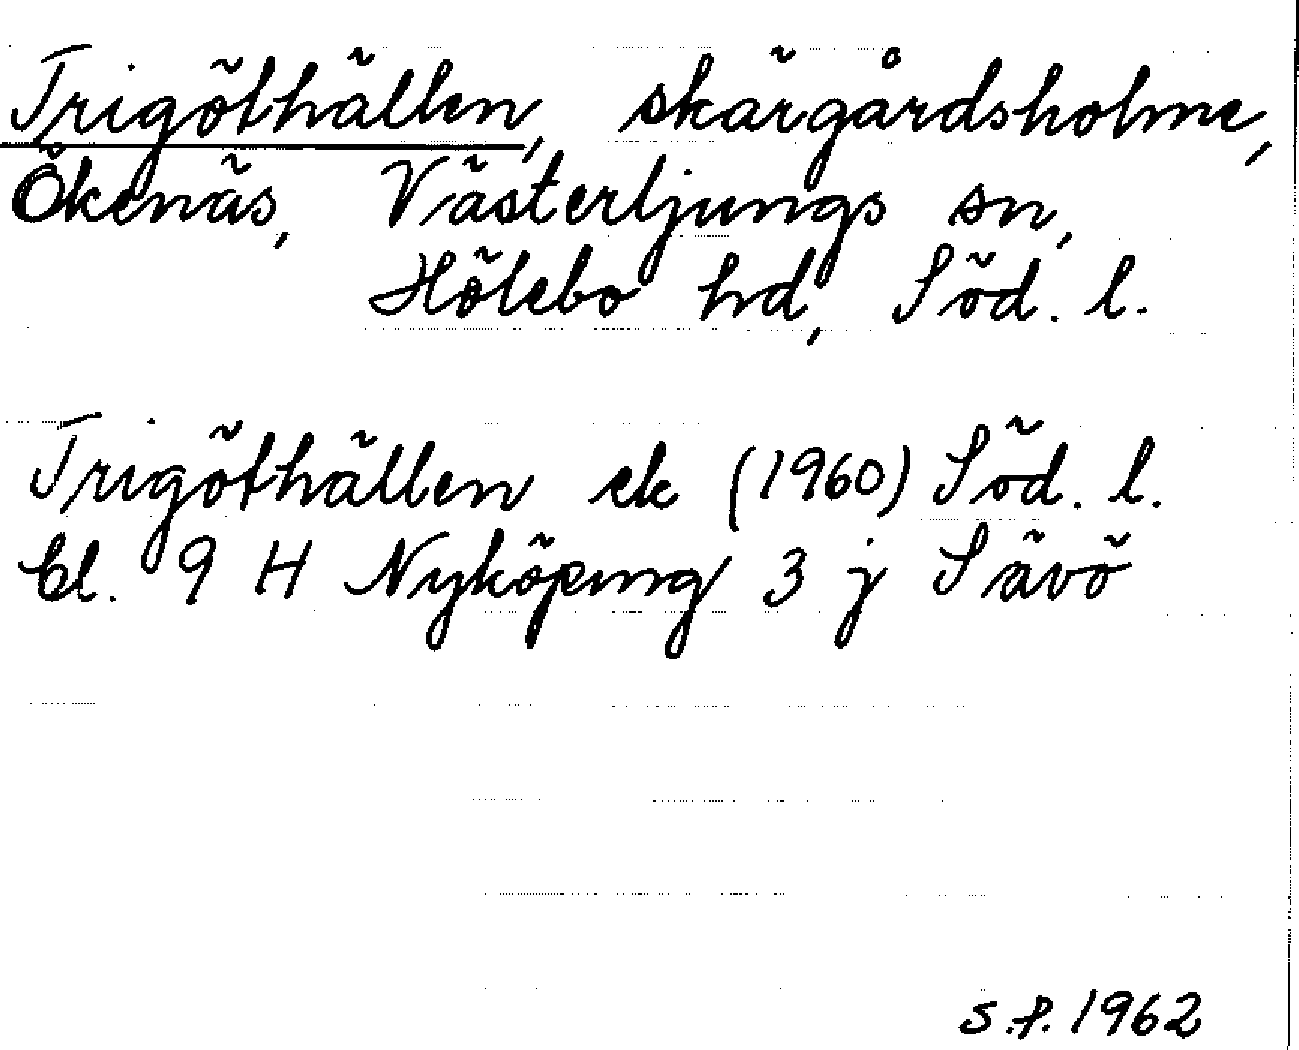 Trigöthällen, skärgårdsholme,
Ökenäs, Västerljungs sn,
Hölebo hd, Söd. l.
Trigöthällen ek (1960) Söd. l.
bl. 9 H Nyköping 3 j Sävö
S.F. 1962